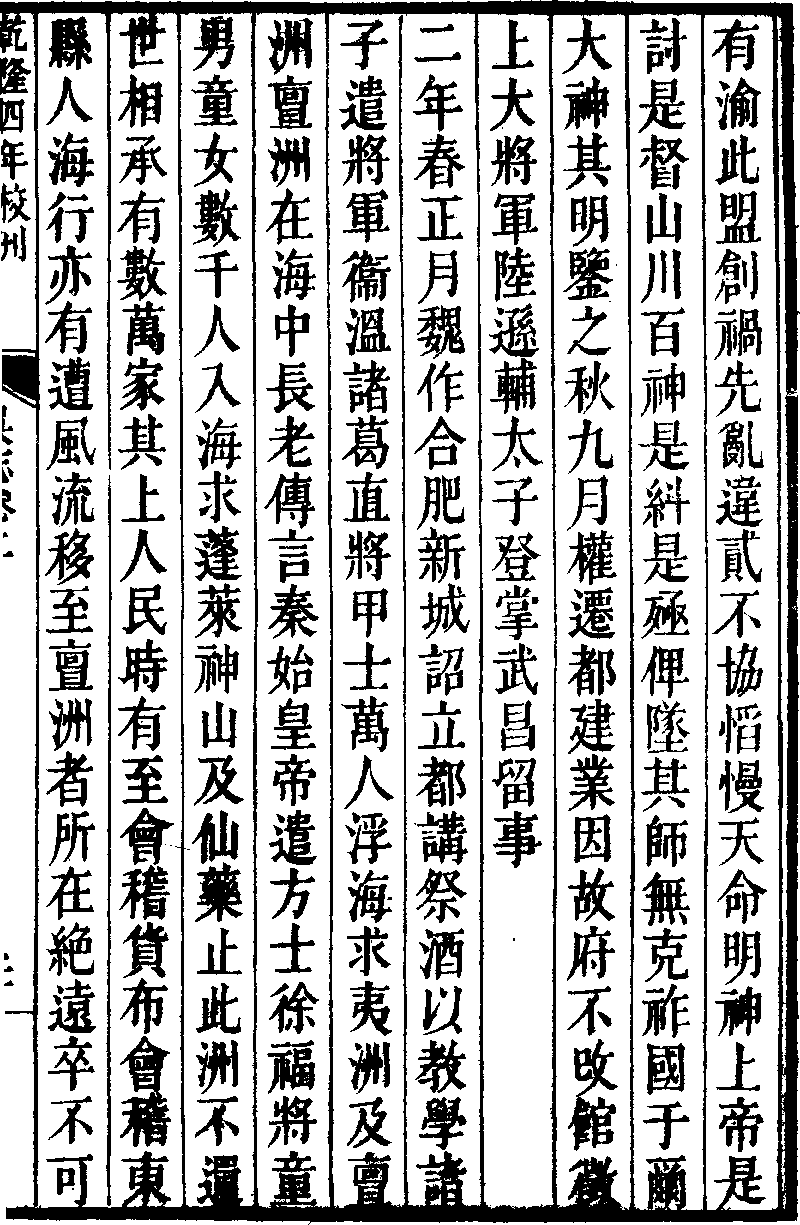 有渝此盟創禍先亂違貳不協慆慢天命明神上帝是
討是督山川百神是糾是殛俾墜其師無克祚國于爾
大神其明鑒之秋九月權遷都建業因故府不改館徵
上大將軍陸遜輔太子登掌武昌留事
二年春正月魏作合肥新城詔立都講祭酒以教學諸
子遣將軍衞溫諸葛直將甲士萬人浮海求夷洲及亶
洲亶洲在海中長老傳言秦始皇帝遣方士徐福將童
男童女數千人入海求蓬萊神山及仙藥止此洲不還
世相承有數萬家其上人民時有至會稽貨布會稽東
縣人海行亦有遭風流移至亶洲者所在絕遠卒不可
乾隆四年校刊